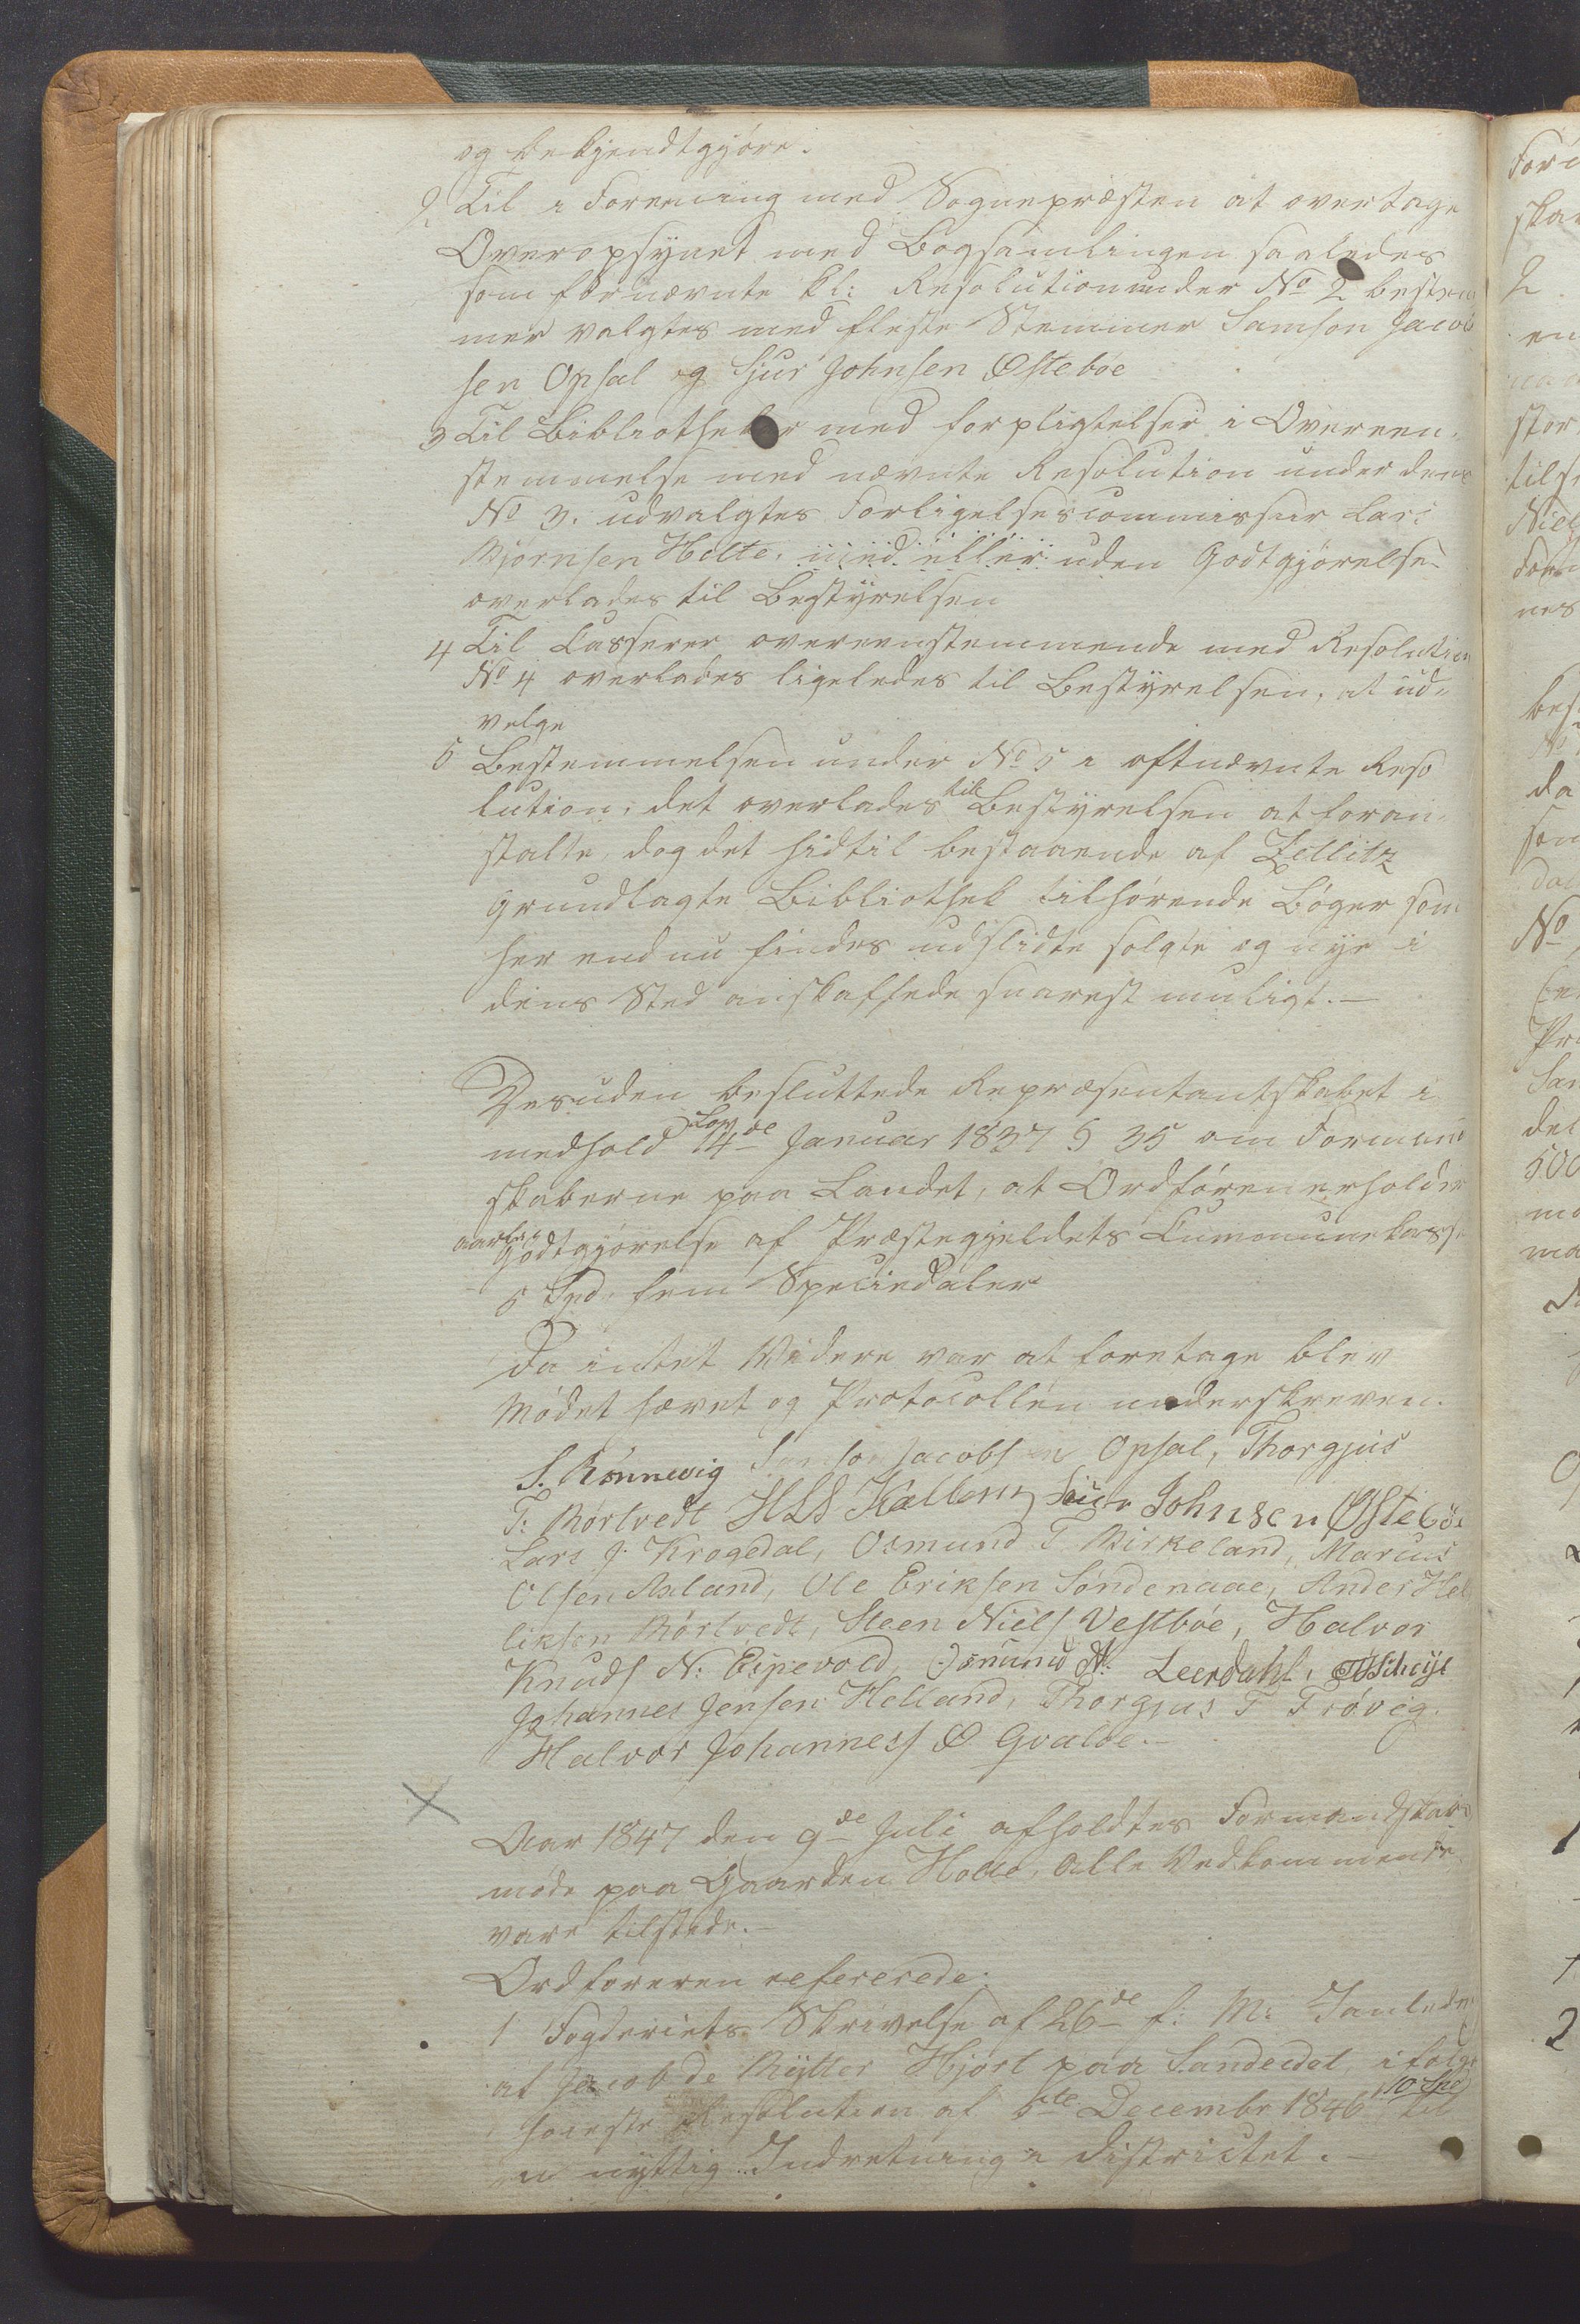 og bekjendtgjøre.
2 Til i Forening med Sognepræsten at overtage
Overopsynet med Bogsamlingen saaledes
som fornævnte kl: Resolution under No 2 bestem
mer valgtes med fleste Stemmer Samson Jacob
sen Opsal og Sjur Johnsen Østebøe
3 Til Bibliothekar med forpligtelser i Overeen-
stemmelse med nævnte Resolution under dens
No 3. udvalgtes Forligelsescommissair Lars
Bjørnsen Holte. med eller uden Godtgjørelse
overlades til Bestyrelsen
4 Til Casserer overeenstemmende med Resolution
No 4 overlades ligeledes til Bestyrelsen, at ud-
velge
5 Bestemmelsen under No 5 i oftnævnte Reso
lution; det overlades til Bestyrelsen at foran-
stalte, dog det hidtil bestaaende af Zellitz
grundlagte Bibliothek tilhørende Bøger som
her endnu findes udslidte solgte og nye i
dens Sted anskaffede snarest muligt.—
Desuden besluttede Repræsentantskabet i
medhold Lov 14de Januar 1837 § 35 om Formand
skaberne paa Landet, at Ordføreren erholder
aarlig Godtgjørelse af Præstegjeldets Communekasse
5 Spd. fem Speciedaler
Da intet Videre var at foretage blev
Mødet hævet og Protocollen underskreven.
S. Rønnevig Samson Jacobsen Opsal, Thorgjus
T: Mørtvedt HLS Kallem Siur Johnsen Østebøe
Lars J. Krogedal, Osmund T Birkeland, Marcus
Olsen Aaland, Ole Eriksen Søndenaae, Ander Hel
liksen Mørtvedt, Steen Niels Vestbøe, Halvor
Knuds N: Espevold, Osmund A: Leerdahl,
Johannes Jensen Helland, Thorgjus T Frøvig.
Halvor Johanness Ø Qvaloe.—
Aar 1847 den 9de Juli afholdtes Formandskabs
møde paa Gaarden Holte, Alle Vedkommende
vare tilstede.—
Ordføreren refererede:
1 Fogderiets Skrivelse af 26de f: M: Janledn
at Jacob de Rytter Hjort paa Sandeidet, ifølge
høieste Resolution af 5te Decembr 1846 10 Spd til
en nyttig Indretning i Districtet.—